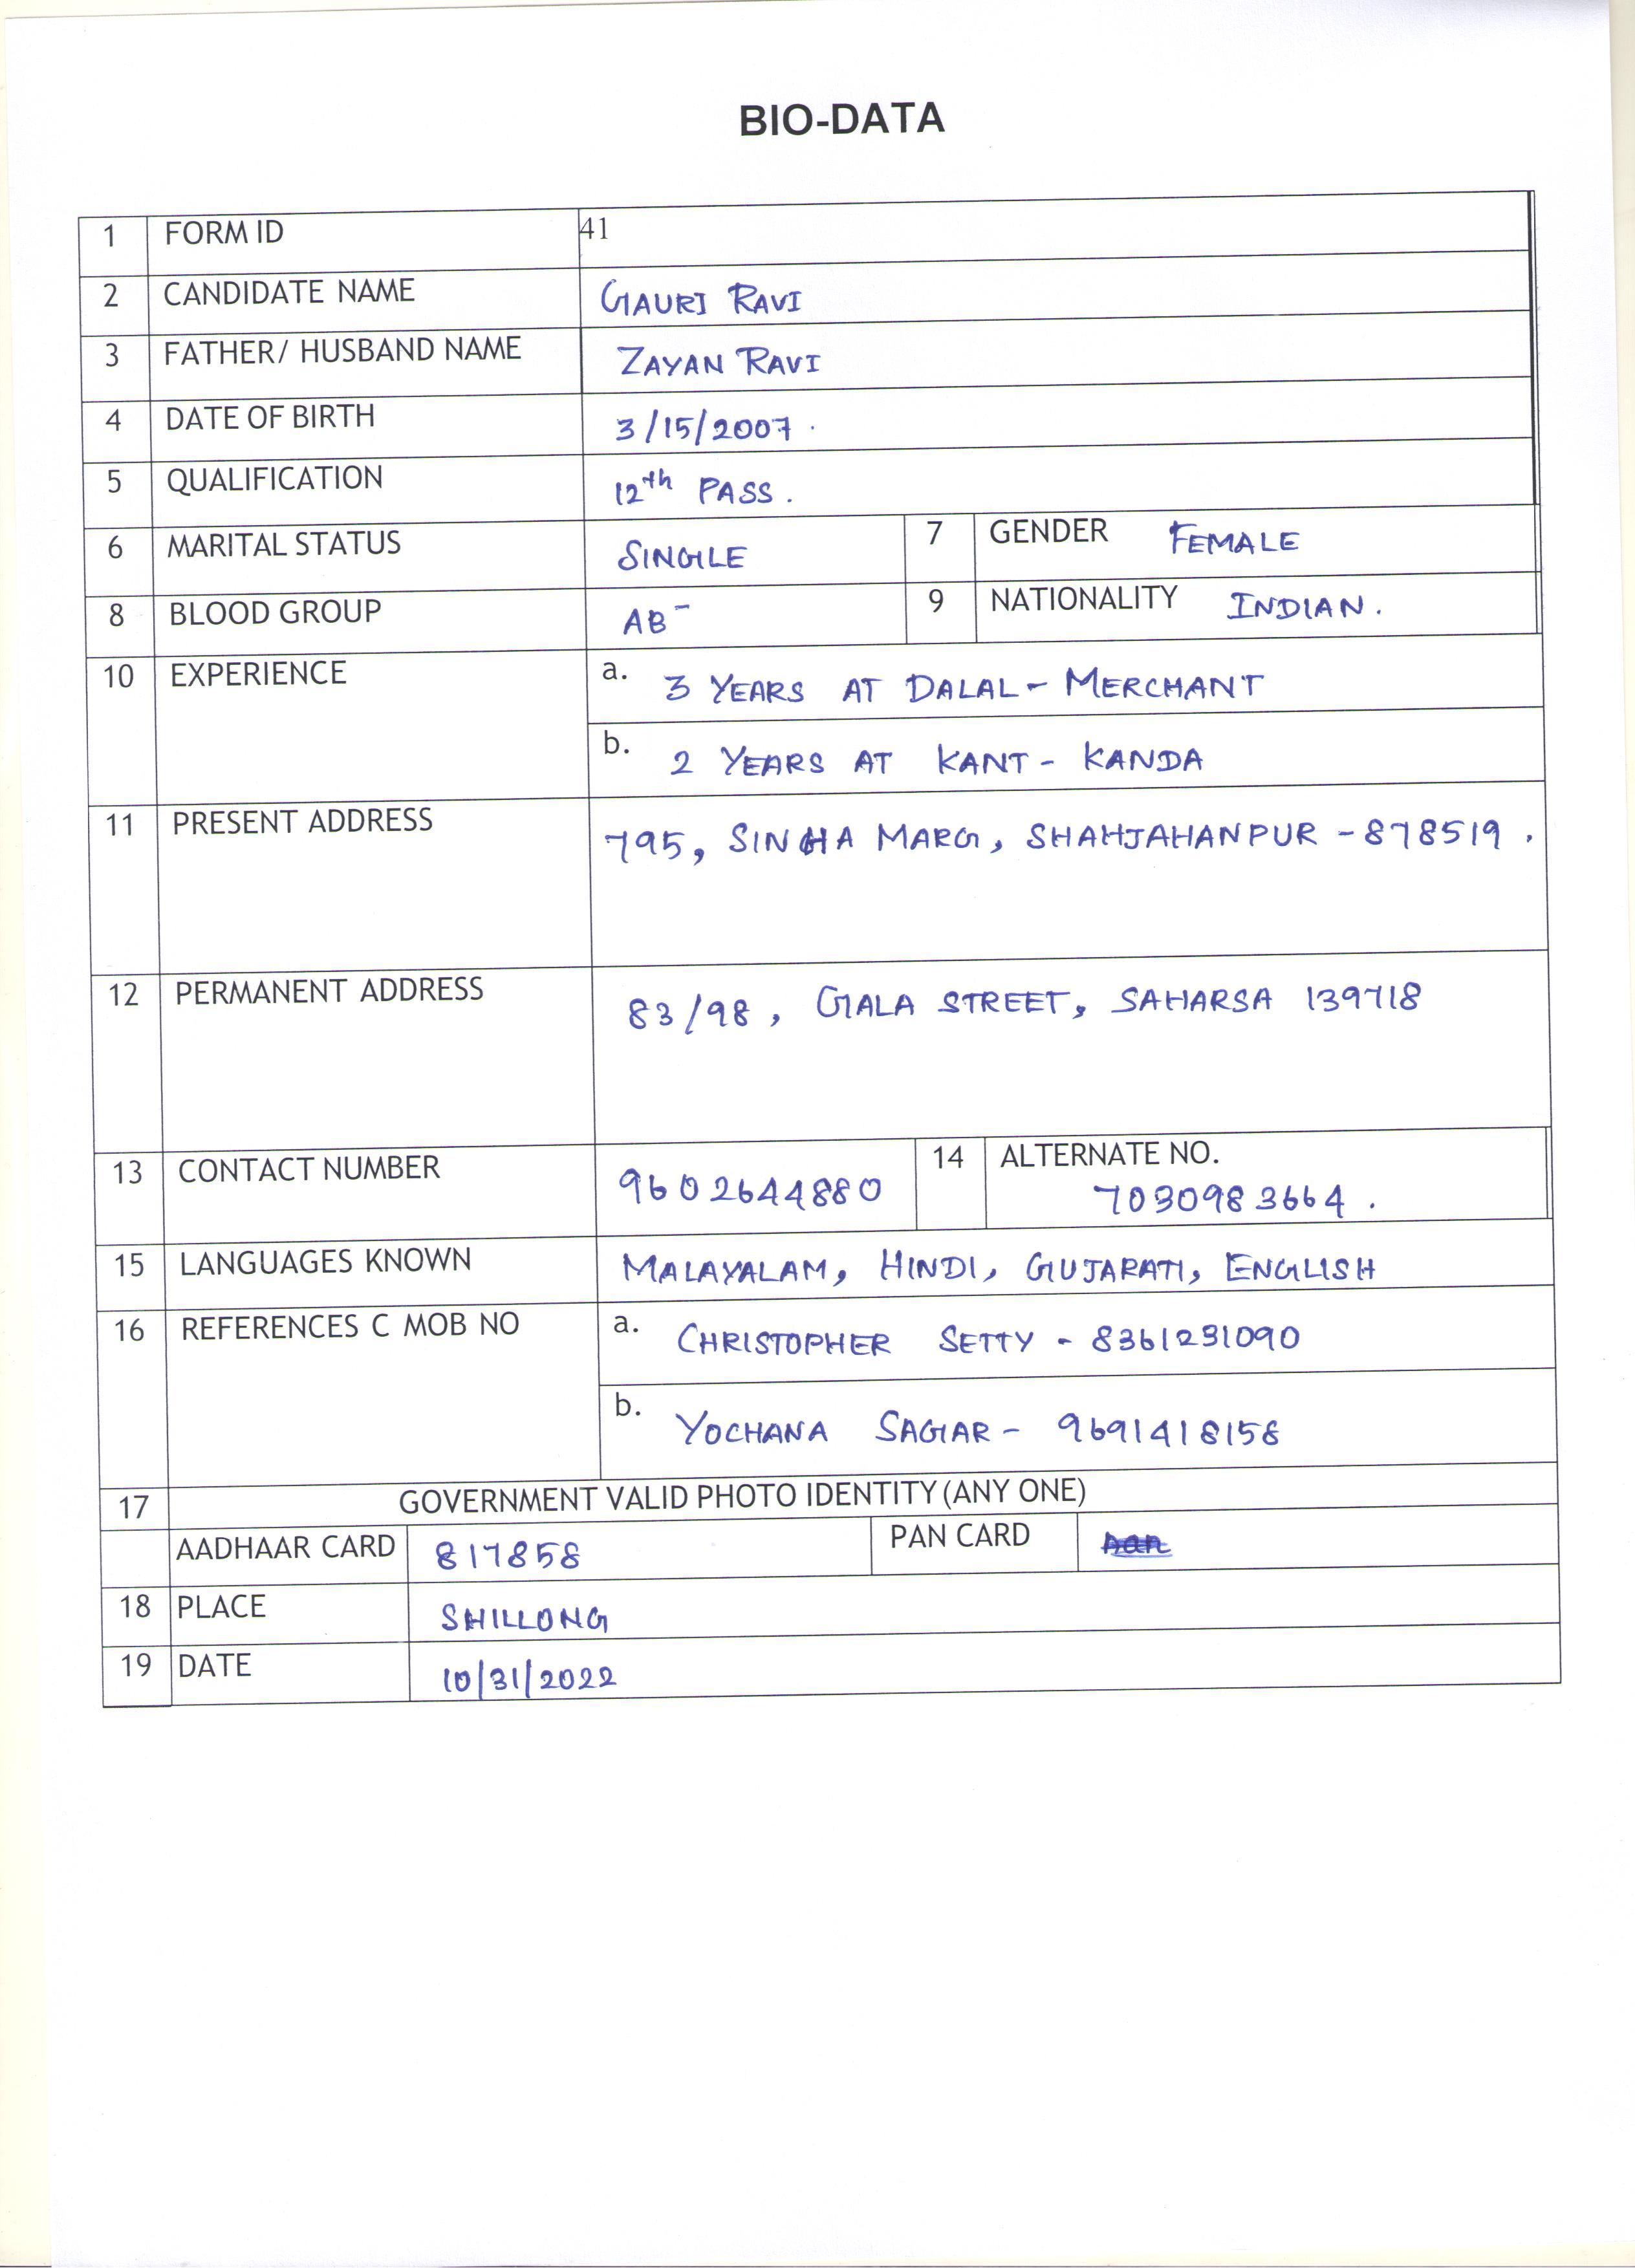 BIO-DATA
1 FORM ID 41
2 CANDIDATE NAME GAURI RAVI
3 FATHER/ HUSBAND NAME ZAYAN RAVI
4 DATE OF BIRTH 3/15/2007.
5 QUALIFICATION 12th PASS.
6 MARITAL STATUS SINGLE 7 GENDER FEMALE
8 BLOOD GROUP AB- 9 NATIONALITY INDIAN.
10 EXPERIENCE a. 3 YEARS AT DALAL - MERCHANT
b. 2 YEARS AT KANT - KANDA
11 PRESENT ADDRESS 795, SINGHA MARG, SHAHJAHANPUR - 878519.
12 PERMANENT ADDRESS 83/98, GALA STREET, SAHARSA 139718
13 CONTACT NUMBER 9602644880 14 ALTERNATE NO.
7030983664.
15 LANGUAGES KNOWN MALAYALAM, HINDI, GUJARATI, ENGLISH
16 REFERENCES C MOB NO a. CHRISTOPHER SETTY - 8361231090
b. YOCHANA SAGAR - 9691418158
17 GOVERNMENT VALID PHOTO IDENTITY (ANY ONE)
AADHAAR CARD 817858 PAN CARD
18 PLACE SHILLONG
19 DATE 10/31/2022